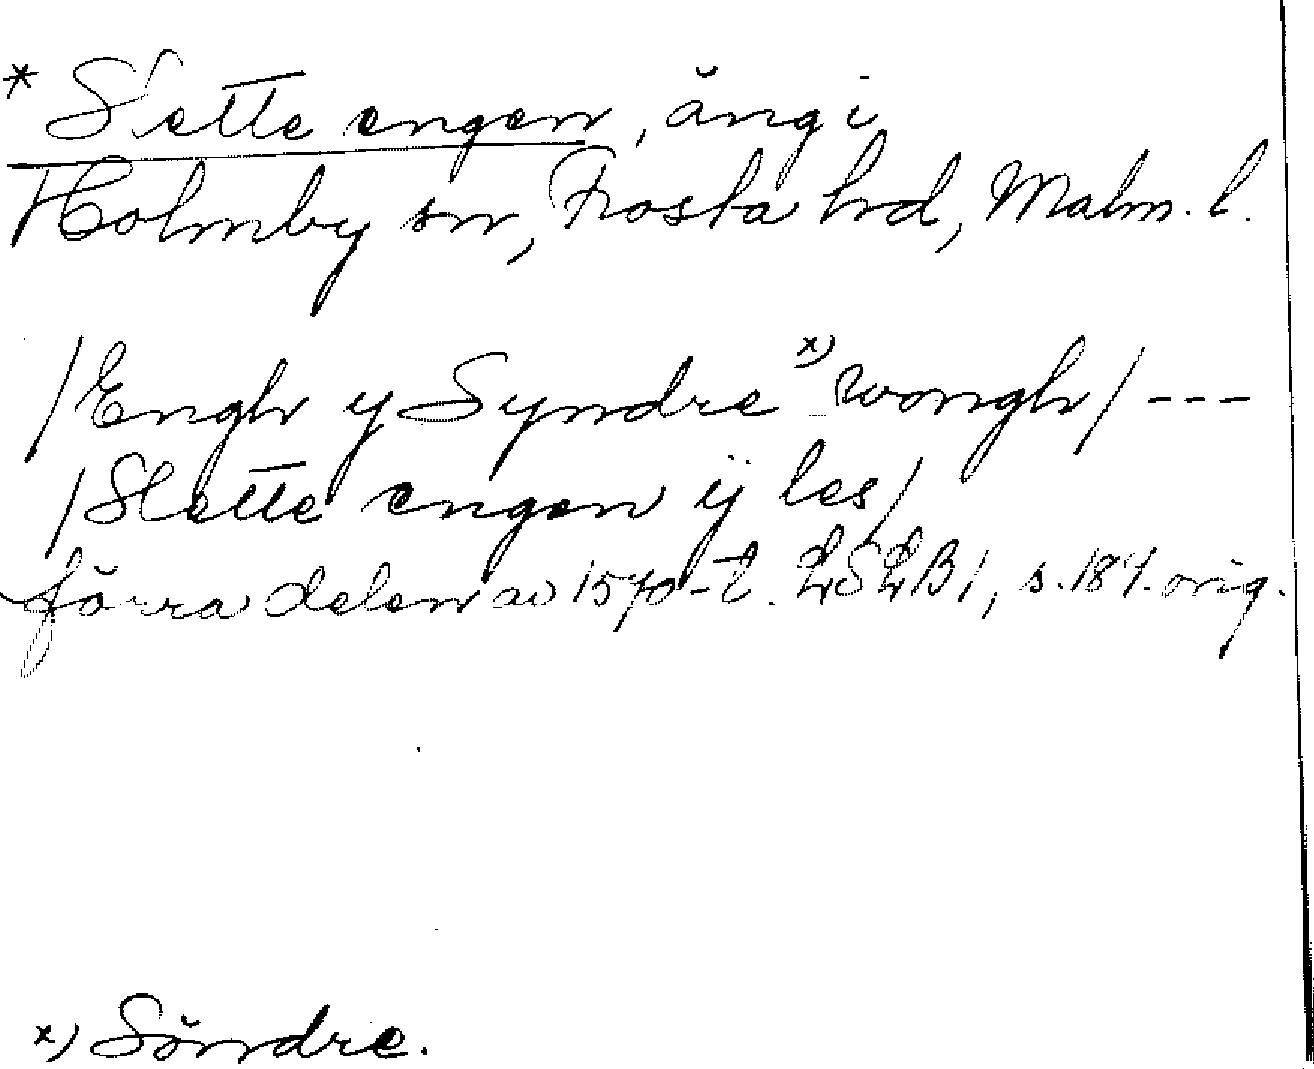 * Slette engen, äng i
Holmby sn, Frosta hd, Malm. l.
/Engh y Syndre x) wongh/ ---
/Slette engen ij les/
förra delen av 1570-t. LSLB1, s. 187. orig.
x) Söndre.